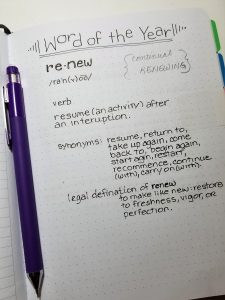 Word of the Year
re·new
(continual
RENEWING)
/rəˈn(y)o͞o/
verb
resume (an activity) after
an interuption.
synonyms: resume, return to,
take up again, come
back to, begin again,
start agin, restart,
recommence, continue
(with), carry on (with).
legal defination of renew
to make like new: restore
to freshness, vigor, or
perfection.